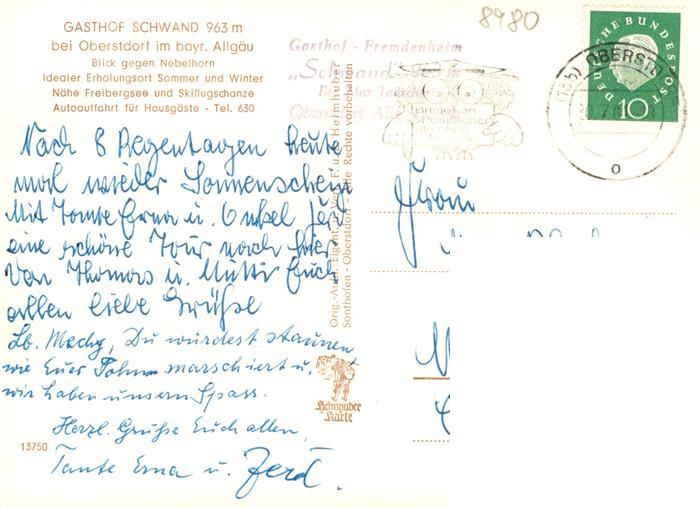 GASTHOF SCHWAND 963 m
bei Oberstdorf im bayr. Allgäu
Blick gegen Nebelhorn
Idealer Erholungsort Sommer und Winter
Nähe Freibergsee und Skiflugschanze
Autoauffahrt für Hausgäste - Tel. 630
8980
Gasthof - Fremdenheim
„Schwand" 963 m
Bes. Max
Oberstdorf Allg.
DEUTSCHE BUNDESPOST
10
(13b) OBERSTD
Nach 8 Regentagen heute
mal wieder Sonnenschein
Mit Tante Erna u. Onkel Ferd.
eine schöne Tour nach hier
Von Thomas u. Mutti Euch
allen liebe Grüße
Lb. Mechy, Du würdest staunen
wie Euer marschiert u.
wir haben unsern Spass.
Herzl. Grüße Euch allen,
Tante Erna u. Ferd.
13750
Orig.-Aufn. Eigent. u. Verl. F. u. J. Heimhuber
Sonthofen - Oberstdorf Alle Rechte vorbehalten
Heimhuber
Karte
Frau